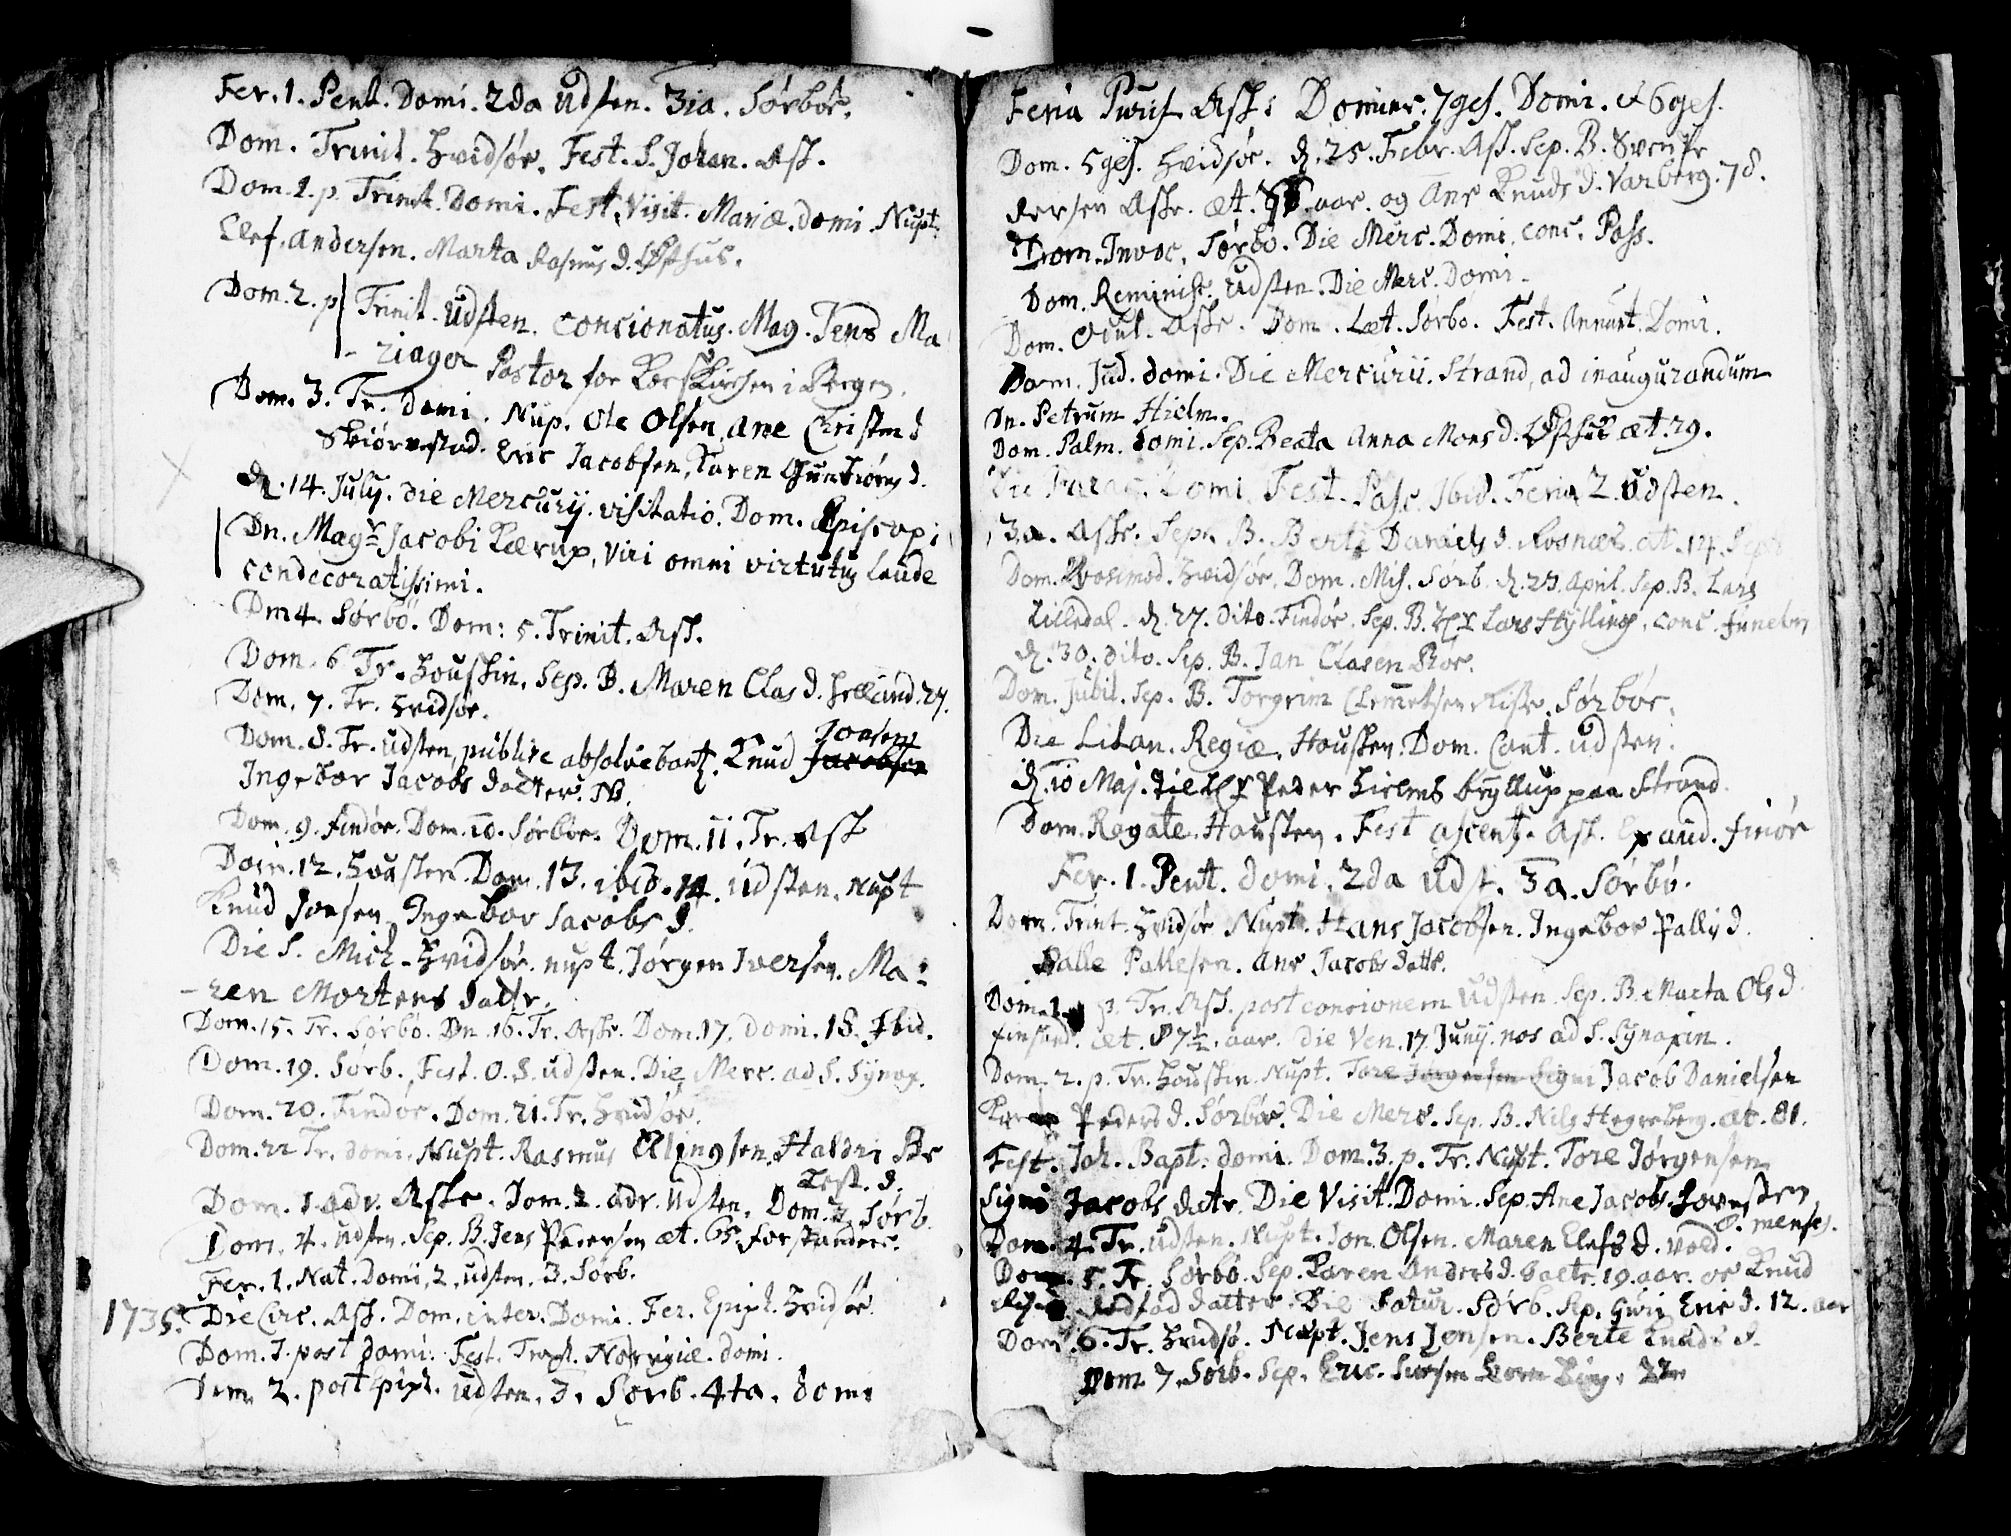 Fer. 1. Pent. Domi. 2da Udsten. 3ia. Sørboe.
Dom. Trinit. Hvidsøe. Fest. S. Johan. Ask.
Dom. 1. p. Trinit. Domi. Fest. Visit. Mariæ. domi. Nupt.
Elef. Andersen. Marta Rasmus d. Østhus.
Dom. 2. p Trinit. Udsten. concionatus. Mag. Jens Ma
- ziager Pastor for Korskirchen i Bergen.
Dom. 3. Tr. domi. Nup. Ole Olsen, Ane Christen d
Skiørvestad. Eric Jacobsen, Karen d.
d. 14. July. die Mercurij. visitatio. Dom. Episcopi
Dn. Magr Jacobi Kærup, viri omni virtutis laude
condecoratissimi.
Dm 4. Sørbö. Dom: 5. Trinit. Ask.
Dom. 6 Tr. Houskin. Sep. B. Maren Clas d. Helland. 27.
Dom. 7. Tr. Hvidsøe.
Dom. 8. Tr. udsten, publice absolvebant. Knud Jacobsen Joesen
Ingebor Jacobs datter. NB.
Dom. 9. Findøe. Dom. 10. Sørbøe. Dom. 11. Tr. Ask
Dom. 12. Housken. Dom. 13. ibid. 14. Udsten. Nupt
Knud Joesen Ingebor Jacobs d.
Die S. Mich. Hvidsøe. nupt. Jørgen Iversen. Ma:
- ren Mortens datter.
Dom. 15. Tr. Sørbö. Dn. 16. Tr. Aske. Dom. 17. domi. 18. Ibid.
Dom. 19. Sørb. Fest. O. S. udsten. Die Merc. ad S. Synax.
Dom. 20. Findøe. Dom. 21. Tr. Hvidsøe.
Dom. 22 Tr. domi. Nupt. Rasmus Haldri
d.
Dom. 1. adv. Aske. Dom. 2. adv. Udsten. Dom. 3 Sørb.
Dom. 4. udsten. Sep. B. Jens Pedersen æt. 65. forstander.
Fer. 1. Nat. Domi, 2. udsten. 3. Sørb.
1735. Die Circ. Ask. Dom. inter. Domi. Fer. Epiph. Hvidsøe.
Dom. 1. post domi. Fest. Norvigie. domi.
Dom. 2. post piph. udsten. 3. Sørb. 4ta. domi
Feria Purif. Ask: Domin. 7ges. Domi. & 6ges.
Dom. 5ges. Hvidsøe. d. 25. Febr. Ask. Sep. B. Svenke
Aske. æt. aar. og Ane Knuds d. Varberg. 78.
Dom. Invoc. Sørbö. Die Merc. Domi. conc. Pass.
Dom. Reminisc. Udsten. Die Merc. Domi.
Dom. Ocul. Aske. Dom. Læt. Sørbö. Fest. Annunt. Domi.
Dom. Jud. domi. Die Mercurii. Strand, ad inaugurandum
Dn. Petrum Hielm.
Dom. Palm. domi. Sep. Beata Anna Mons d. Østhus æt. 29.
Die Domi. Fest. Pasc. Ibid. Feria 2. Udsten.
3a. Aske. Sep. B. Berte Daniels d. æt. 14.
Dom. Qvasimod. Hvidsøe. Dom. Mis. Sørb. d. 23. April. Sep. B. Lars
Lilledal. d. 27. dito. Findøe. Sep. B. Hr Lars Hytling. conc. funebr
d. 30. dito. Sep. B. Jan Clasen
Dom. Jubil. Sep. B. Torgrim Clemetsen Sørbøe.
Die Litan. Regiæ. Housken. Dom. Cant. udsten.
d. 10 Maj. til Hr Peder Hielms bryllup paa Strand.
Dom. Rogate. Housken. Fest ascent. Ask. Exaud. Finöe
Fer. 1. Pent. domi. 2da Udst. 3a. Sørbö.
Dom. Trint. Hvidsøe Nupt. Hans Jacobsen. Ingebor Palli d.
Palle Pallesen. Ane Jacobs datte.
Dom. 1. p. Tr. Ask. post concionem Udsten. Sep. B. Marta Ols d.
æt. 87½. aar. die Ven. 17 Junij. nos ad S. Synaxin.
Dom. 2. p. Tr. Houskin. Nupt. Tore Jørgensen Signi Jacob Danielsen
Peders d. Sørböe. Die Merc. Sep. B. Nils Hegreberg. æt. 81.
Fest. Joh. Bapt. domi. Dom. 3. p. Tr. Nupt. Tore Jørgensen
Signi Jacobs datr. Die Visit. Domi. Sep. Ane Jacobs. Housken,
8. menses.
Dom. 4. Tr. udsten. Nupt. Jon Olsen. Maren Elefs d. Vold.
Dom. 5. Tr. Sørbö. Sep. Karen Anders d. 19. aar. oc Knud
datter. Die Satur. Sörb. Sep. Guri Eric d. 12. aar
Dom. 6. Tr. Hvidsø. Nupt. Jens Jensen. Berte Knuds d.
Dom 7. Sörb. Sep. Eric.